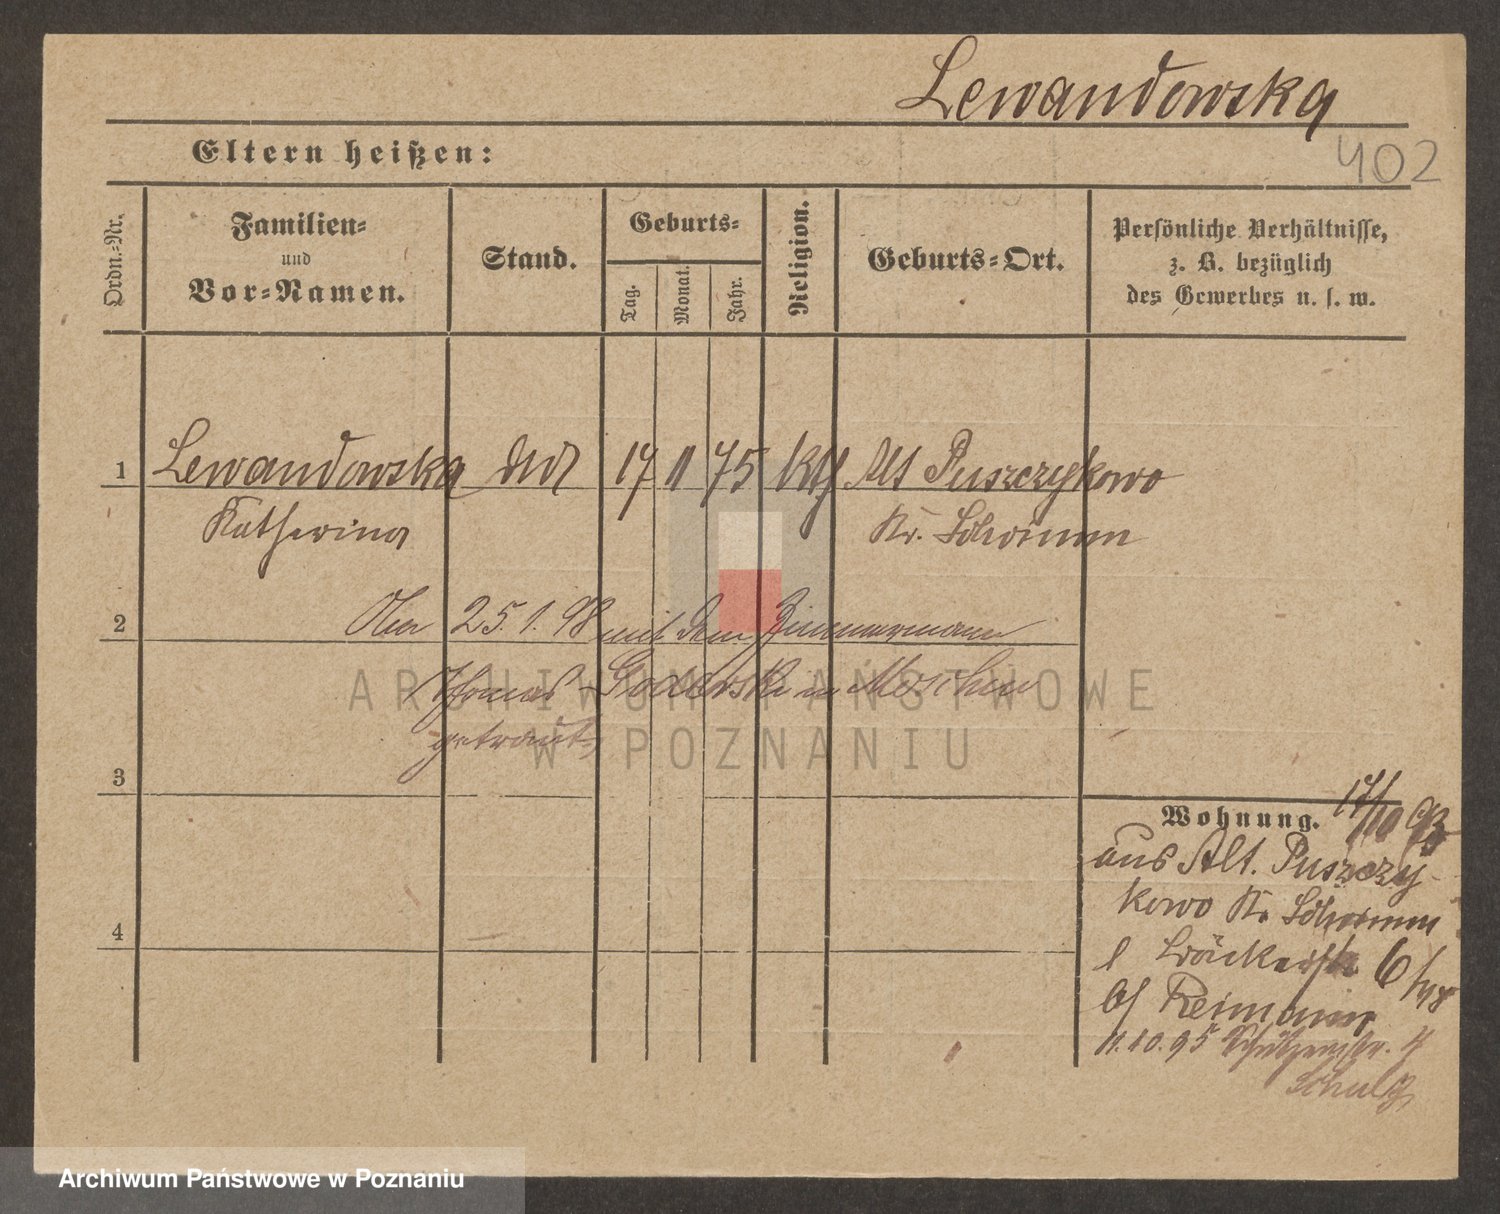 Lewandowska
402
Eltern heißen:
Ordn.-Nr.
Familien-
und
Vor-Namen.
Stand.
Geburts-
Tag.
Monat.
Jahr.
Religion.
Geburts-Ort.
Persönliche Verhältnisse,
z. B. bezüglich
des Gewerbes u. s. w.
1 Lewandowska 17 11 75 kth Alt Puszczykowo
Katherina Kr. Schrimm
2 25.1.98 mit dem Zimmermann
Thomas Goderski in Moschin
getraut
3
4
Wohnung. 17/10 93
aus Alt. Puszczy-
kowo Kr. Schrimm
6/
b/ Reimann
11.10.95 Schützenstr. 4
Schulz
ARCHIWUM PAŃSTWOWE
W POZNANIU
Archiwum Państwowe w Poznaniu